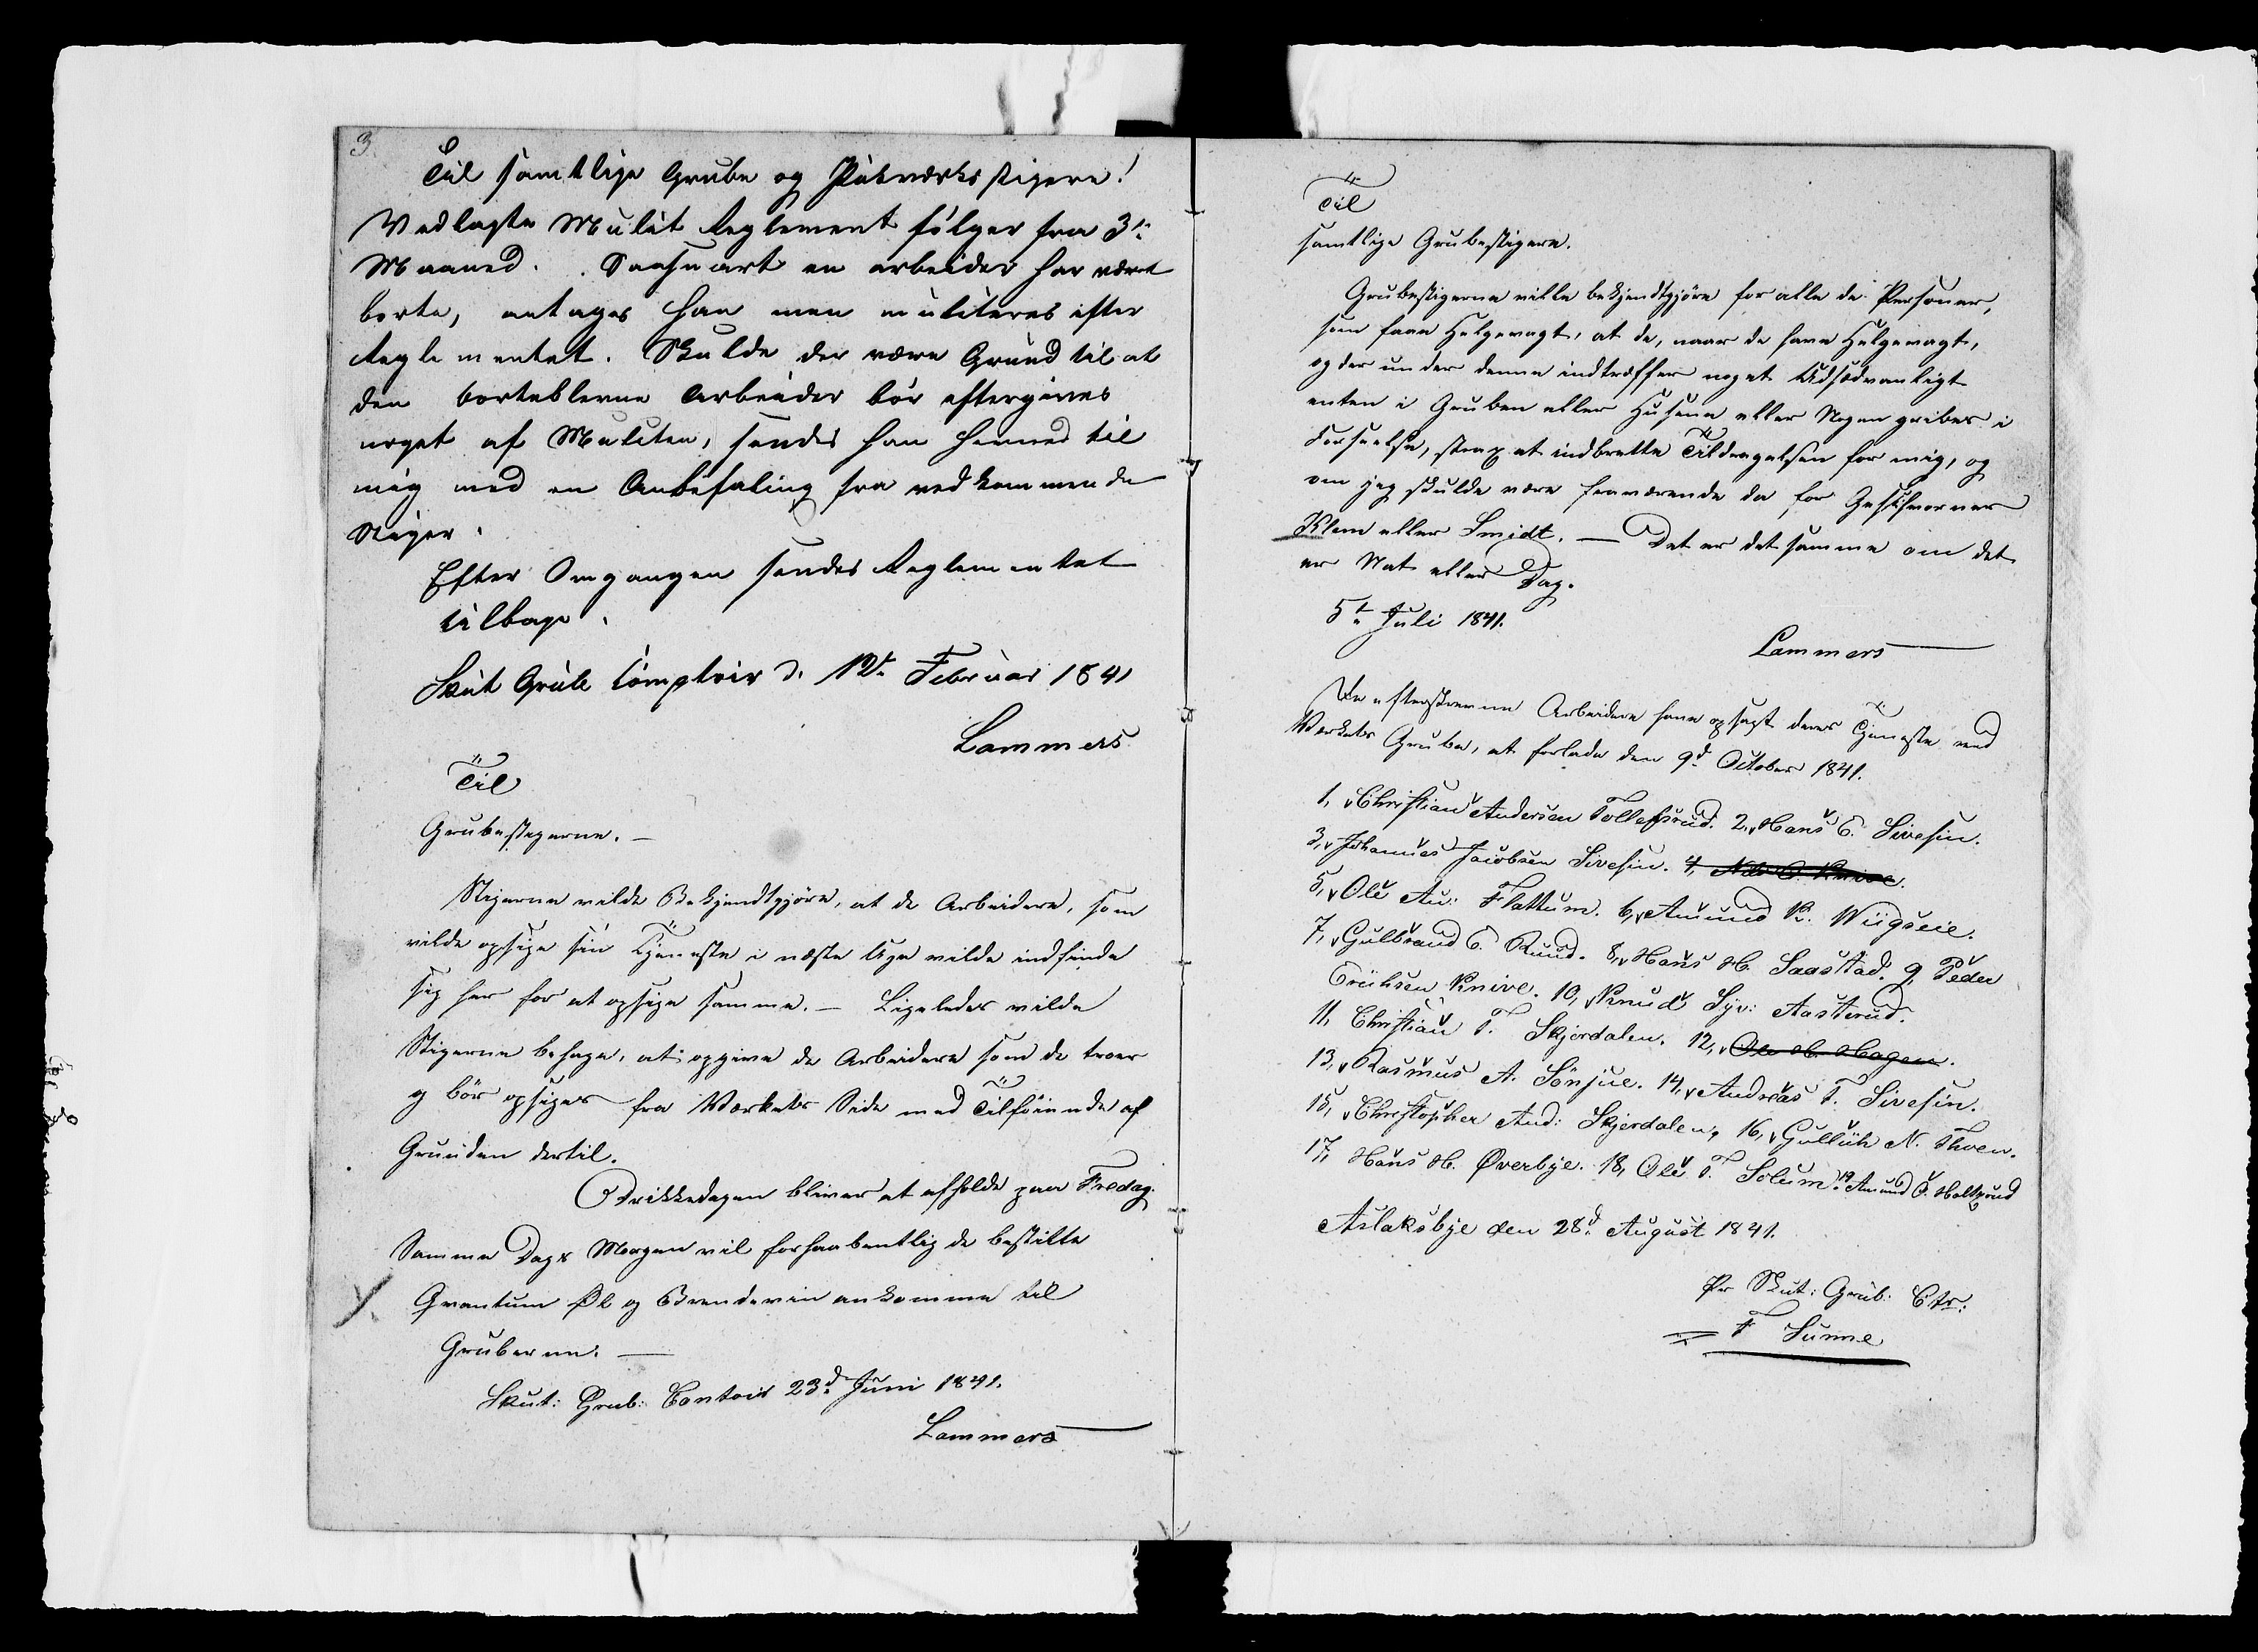 3.
Til samtlige Grube og Pukværksstigere!
Vedlagte Mulct Reglement følger fra 3die
Maaned. Saasnart en arbeider har været
borte, antages han men mulcteres efter
Reglementet. Skulde der være Grund til at
denborteblevne Arbeider bør eftergives
noget af Mulcten, sendes han herned til
mig med en Anbefaling fra vedkommende
Stiger.
Efter Omgangen sendes Reglementet
tilbage.
Skut Grube Comptoir d. 12te Februar 1841
Lammers
Til
Grubestigerne. —
Stigerne vilde Bekjendtgjöre, at de Arbeidere, som
vilde opsige sin Tjeneste i næste Uge vilde indfinde
sig her for at opsige samme. — Ligeledes vilde
Stigerne behage, at opgive de Arbeidere som de troer
og bör opsiges fra Værkets Side med Tilföiende af
Grunden dertil.
Drikkedagen bliver at afholde paa Fredag.
Samme Dags Morgen vil forhaabentlig de bestilte
Qvantum Øl og Brændeviin ankomme til
Gruberne. —
Skut: Grub: Contoir 23d Juni 1841.
Lammers
Til
samtlige Grubestigere.
Grubestigerne ville bekjendtgjöre for alle de Personer,
som faae Helgevagt, at de, naar de have Helgevagt,
og der under denne indtræffer noget Udsædvanligt
enten i Gruben eller Husene eller Nogen gribes i
Forseelse, strax at indberette Tildragelsen for mig, og
om jeg skulde være fraværende da for Geschworner
Klem eller Smidt. — Det er det samme om det
er Nat eller Dag.
5te Juli 1841.
Lammers
De efterskrevne Arbeidere have opsagt deres Tjeneste ved
Værkets Grube, at forlade den 9d October 1841.
1, Christian Andersen Tollefsrud. 2, Hans C. Sivesin.
3, Johannes Jacobsen Sivesin. 4, Nils O. Knive.
5, Ole An: Flattum. 6, Amund K. Wiigseie.
7, Gulbrand C. Ruud. 8, Hans H. Saastad. 9, Peder
Erichsen Knive. 10, Knud Syv: Aasterud.
11, Christian T. Skjerdalen. 12, Ole H. Hagen.
13, Rasmus A. Sönjue. 14, Andreas T. Sivesin.
15, Christopher And: Skjerdalen, 16, Gullich N. Thoen.
17, Hans H. Øverbye. 18, Ole T. Solum. 19, Amund O. Holtsrud
Aslaksbye den 28d August 1841.
Pr Skut: Grub: Ctr:
F Sunne